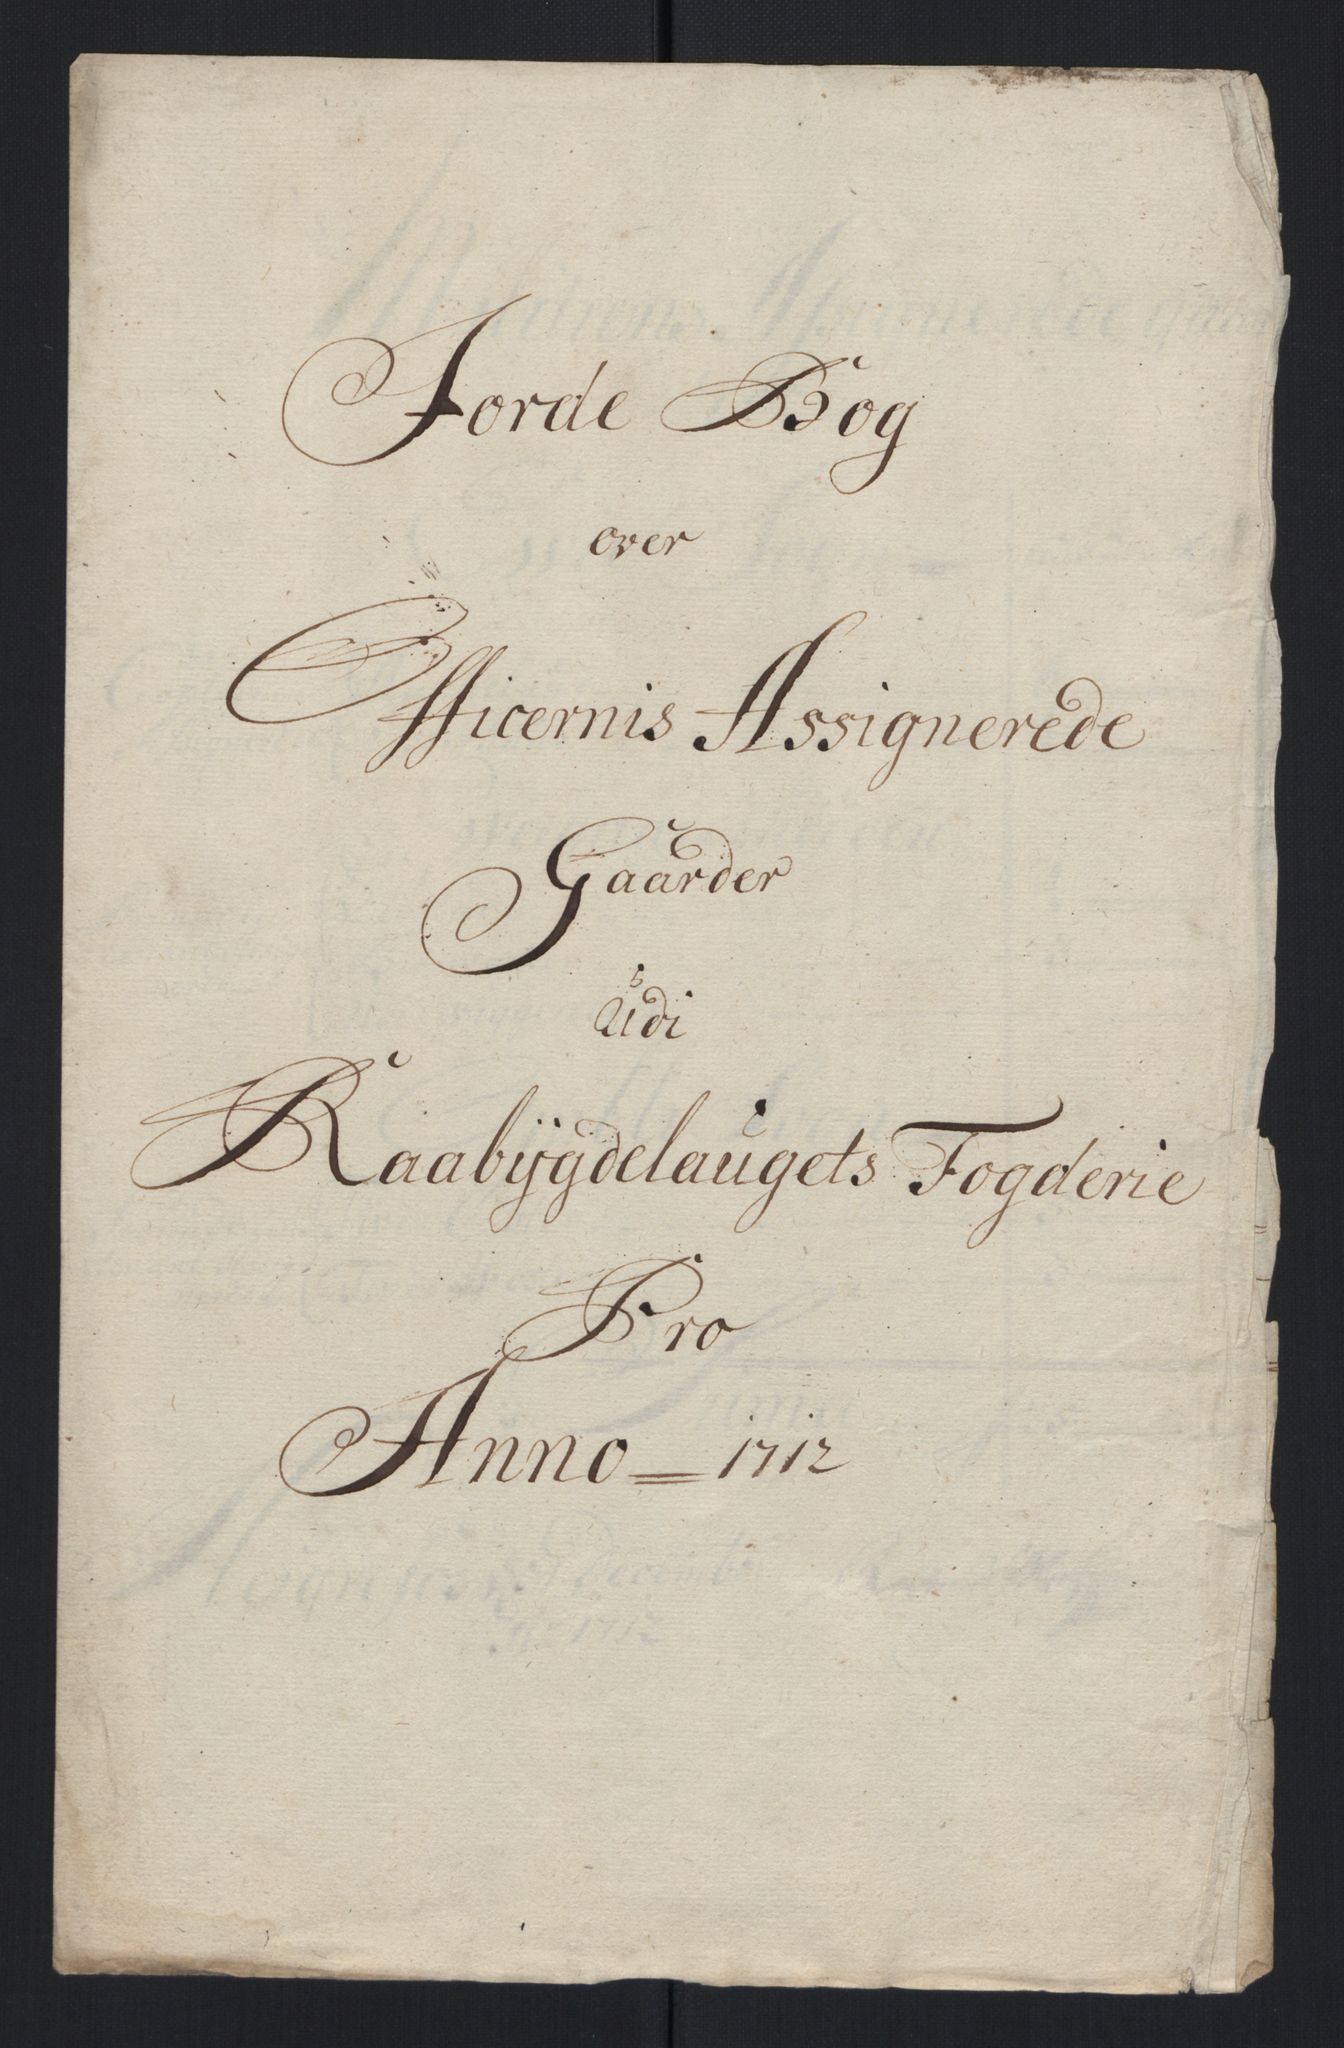 Jorde Bog
over
Officernis Assignerede
Gaarder
Udi
Raabijgdelaugets Fogderie
Pro
Anno 1712